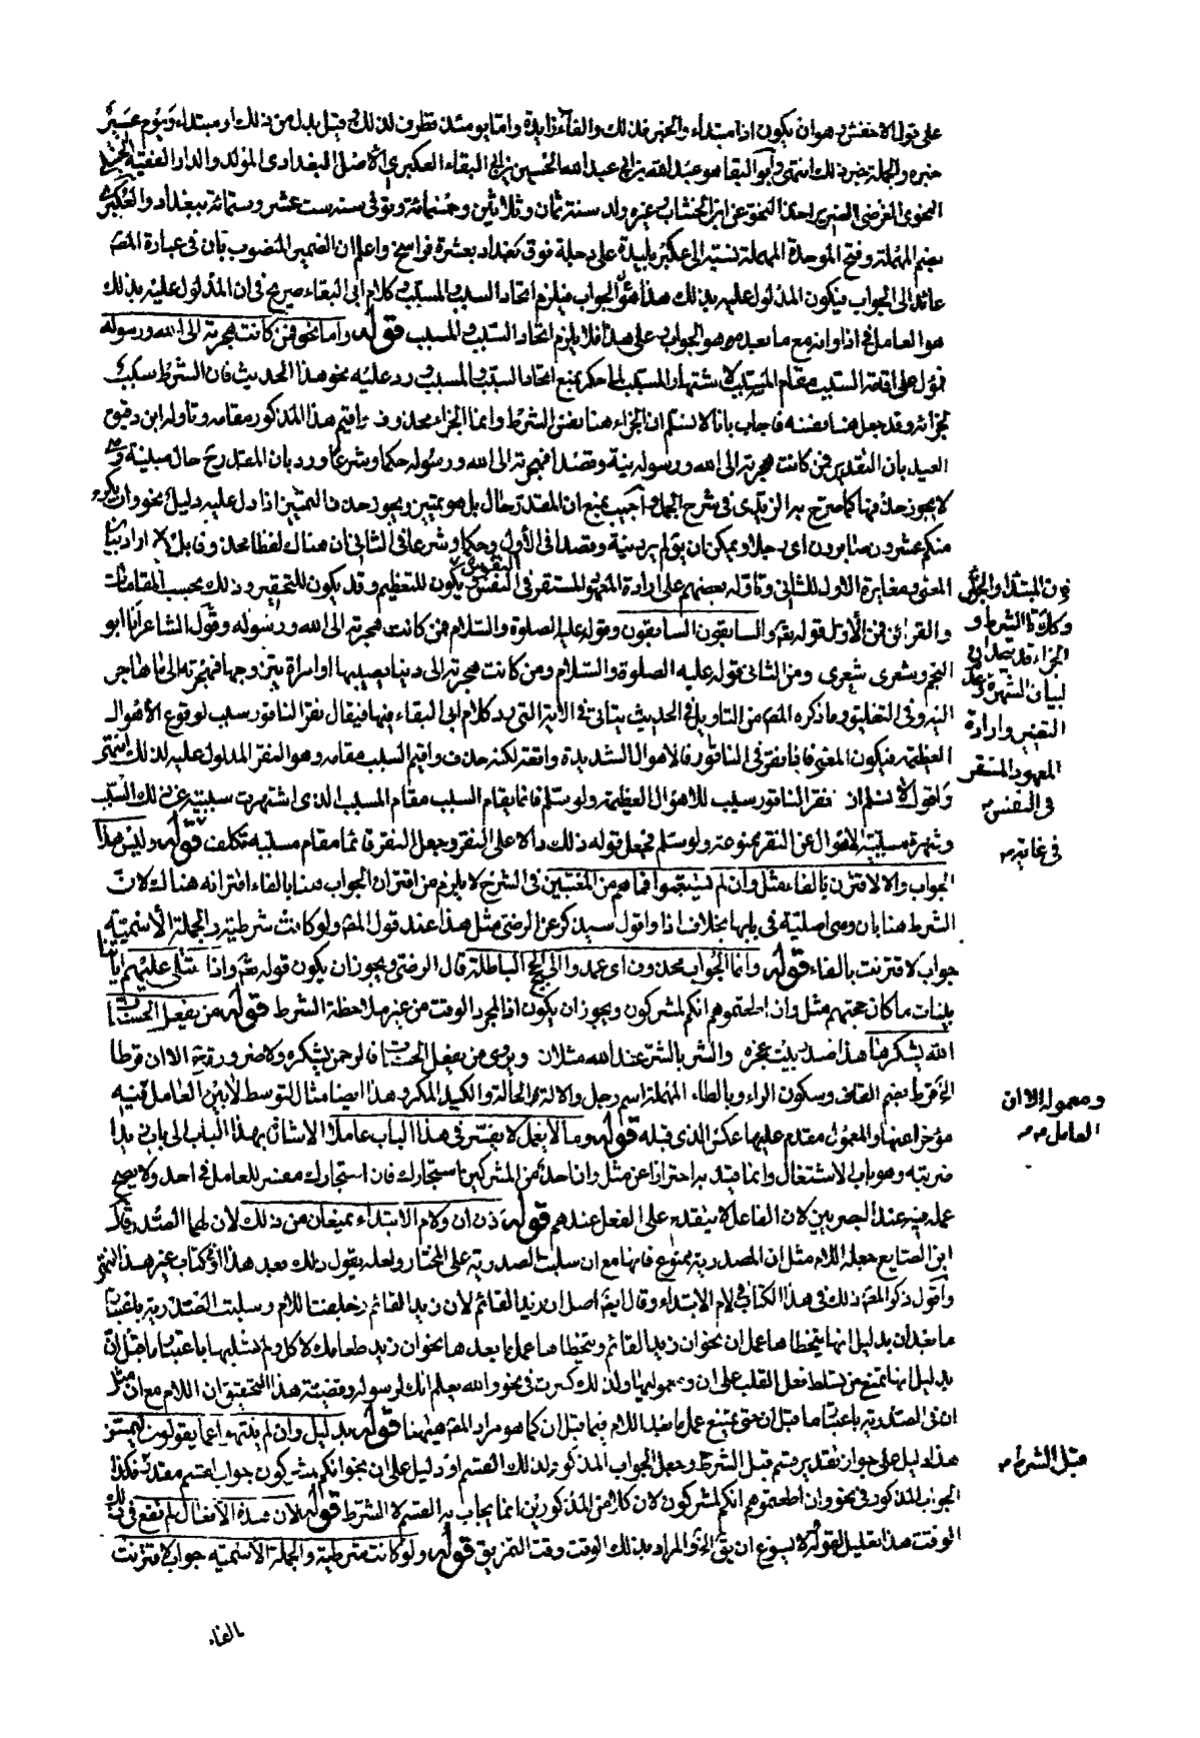 على قول الاخفش هو ان يكون اذا مبتداء والخبر فذلك والفاء زايدة واما يومئذ فظرف لذلك قيل بدل من ذلك او مبتداء ويوم عسير
خبره والجملة خبر ذلك انتهى وابو البقا هو عبد الله بن ابى عبد الله الحسين بن ابى البقاء العكبرى الاصل البغدادى المولد والدار الفقيه الحنبلى
النحوى الفرضى الضرير اخذ النحو عن ابن الخشاب وغيره ولد سنة ثمان وثلاثين وخمسمائة وتوفى سنة ست عشر وستمائة ببغداد والعكبرى
بضم المهملة وفتح الموحدة المهملة نسبة الى عكبر بليدة على دجلة فوق بغداد بعشرة فراسخ واعلم ان الضمير المنصوب بان فى عبارة المصـ
عائد الى الجواب فيكون المدلول عليه بذلك هذا هو الجواب فيلزم اتحاد السبب والمسبب وكلام ابى البقاء صريح فى ان المدلول عليه بذلك
هو العامل فى اذا وانه مع ما بعده هو الجواب وعلى هذا فلا يلزم اتحاد السبب والمسبب قوله واما نحو فمن كانت هجرته الى الله ورسوله
فمؤول على اقامة السبب مقام المسبب لاشتهار المسبب لما حكم بمنع اتحاد السبب والمسبب ورد عليه نحو هذا الحديث فان الشرط سبب
لجزائه وقد جعل هنا نفسه فاجاب بانا لا نسلم ان الجزاء هنا نفس الشرط وانما الجزاء محذوف واقيم هذا المذكور مقامه وتاوله ابن دقيق
العيد بان التقدير فمن كانت هجرته الى الله ورسوله نية وقصدا فهجرته الى الله ورسوله حكما وشرعا ورد بان المقدر ح حال مبينة
لا يجوز حذفها كما صرح به الزيدى فى شرح الجمل واجيب بمنع ان المقدر حال بل هو تمييز ويجوز حذف التمييز اذا دل عليه دليل نحو وان يكن
منكم عشرون صابرون اى رجلا ويمكن ان يقال لم يرد بنية وقصدا فى الاول وحكما وشرعا فى الثانى ان هناك لفظا محذوفا بل اراد بيان
المعنى ومغايرة الاول للثانى وتاوله بعضهم على ارادة المعهود المستقر فى النفس ويكون للتعظيم وقد يكون للتحقير وذلك بحسب المقامات
والقرائن فمن الاول قوله تع والسابقون السابقون وقوله عليه الصلوة والسلام فمن كانت هجرته الى الله ورسوله وقول الشاعر انا ابو
النجم وشعرى شعرى ومن الثانى قوله عليه الصلوة والسلام ومن كانت هجرته الى دنيا يصيبها او امراة يتزوجها فهجرته الى ما هاجر
اليه وفى التعليق وما ذكره المصـ من التاويل فى الحديث يتاتى فى الآية التى رد كلام ابى البقاء فيها فيقال نقر الناقور سبب لوقوع الاهوال
العظيمة فيكون المعنى فاذا نقر فى الناقور فالاهوال الشديدة واقعة لكنه حذف واقيم السبب مقامه وهو النقر المدلول عليه لذلك انتهى
واقول لا نسلم ان نقر الناقور سبب للاهوال العظيمة ولو سلم فانما يقام السبب مقام المسبب الذى اشتهرت سببيته عن ذلك السبب
وشهرة مسببية الاهوال عن النقر ممنوعة ولو سلم فجعل قوله ذلك دالا على النقر وجعل النقر قائما مقام مسببه تكلف قوله وليس هذا
الجواب والا لاقترن بالفاء مثل وان يستعتبوا فما هم من المعتبين فى الشرح لا يلزم من اقتران الجواب هنا بالفاء اقترانه هناك لان
الشرط هنا بان وهى اصلية فى بابها بخلاف اذا واقول سيذكر عن الرضى مثل هذا عند قول المصـ ولو كانت شرطية والجملة الاسمية
جوابا لاقترنت بالفاء قوله وانما الجواب محذوف اى عمدوا الى الحجج الباطلة قال الرضى ويجوز ان يكون قوله تع واذا تتلى عليهم اياتنا
بينات ما كان حجتهم مثل وان اطعتموهم انكم لمشركون ويجوز ان يكون اذا لمجرد الوقت من غير ملاحظة الشرط قوله من يفعل الحسنات
الله يشكرها هذا صدر بيت عجزه والشر بالشر عند الله مثلان ويروى من يفعل الخير فالرحمن يشكره ولا ضرورة فيه الا ان قرطا
الخ قرط بضم القاف وسكون الراء وبالطاء المهملة اسم رجل والالة الحالة والكيد المكر وهذا ايضا مثال لتوسط لا بين العامل فيه
مؤخرا عنها والمعمول مقدم عليها عكس الذى قبله قوله وما لا يعمل لا يفسر فى هذا الباب عاملا الاشارة بهذا الباب الى باب زيدا
ضربته وهو باب الاشتغال وانما قيد به احترازا عن مثل وان احد من المشركين استجارك فان استجارك مفسر للعامل فى احد ولا يصح
عمله فيه عند البصريين لان الفاعل لا يتقدم على الفعل عندهم قوله ذن ان ولام الابتداء يمنعان من ذلك لان لهما الصدر قال
ابن الصايغ جعله اللام مثل ان المصدرية ممنوع فانها مع ان سلبت الصدرية على المختار ولعله يقول ذلك بعد هذا الكتاب غير هذا انتهى
واقول ذكر المصـ ذلك فى هذا الكتاب فى لام الابتداء وقال ايضا اصل ان زيدا لقائم لان زيدا لقائم زحلفت اللام وسلبت الصدرية باعتبار
ما بعد ان بدليل انها يتخطاها عمل ان نحو ان زيدا لقائم ويتخطاها عمل ما بعدها نحو ان زيدا طعامك لآكل ولم تسلبها باعتبار ما قبل ان
بدليل انها تمنع من تسلط فعل القلب على ان ومعموليها ولذلك كسرت فى نحو والله يعلم انك لرسوله وقضية هذا التحقيق ان اللام مع ان مثل
ان فى الصدرية باعتبار ما قبل ان حتى يمتنع عمل ما بعد اللام فيما قبل ان كما هو مراد المصـ هيهنا قوله بدليل وان لم ينتهوا عما يقولون ليمسن
هذا دليل على جواز تقدير قسم قبل الشرط وجعل الجواب المذكور لذلك القسم او دليل على ان نحو انكم لمشركون جواب لقسم مقدر فكذا
الجواب المذكور فى نحو وان اطعتموهم انكم لمشركون لان كلا من المذكورين انما يجاب به القسم لا الشرط قوله لان هذه الافعال لم تقع فى ذلك
الوقت هذا تعليل لقوله لا يسوغ ان يق الخ والمراد بذلك الوقت وقت التمزيق قوله ولو كانت شرطية والجملة الاسمية جوابا لاقترنت
فى ان المبتداء والخبر
وكذا الشرط و
الجزاء قد يتحدان
لبيان الشهرة وعدم
التغير وارادة
المعهود المستقر
فى النفس صح
فى غايته صح
ومعموله الا ان
العامل صح
قبل الشرط صح
بالفاء